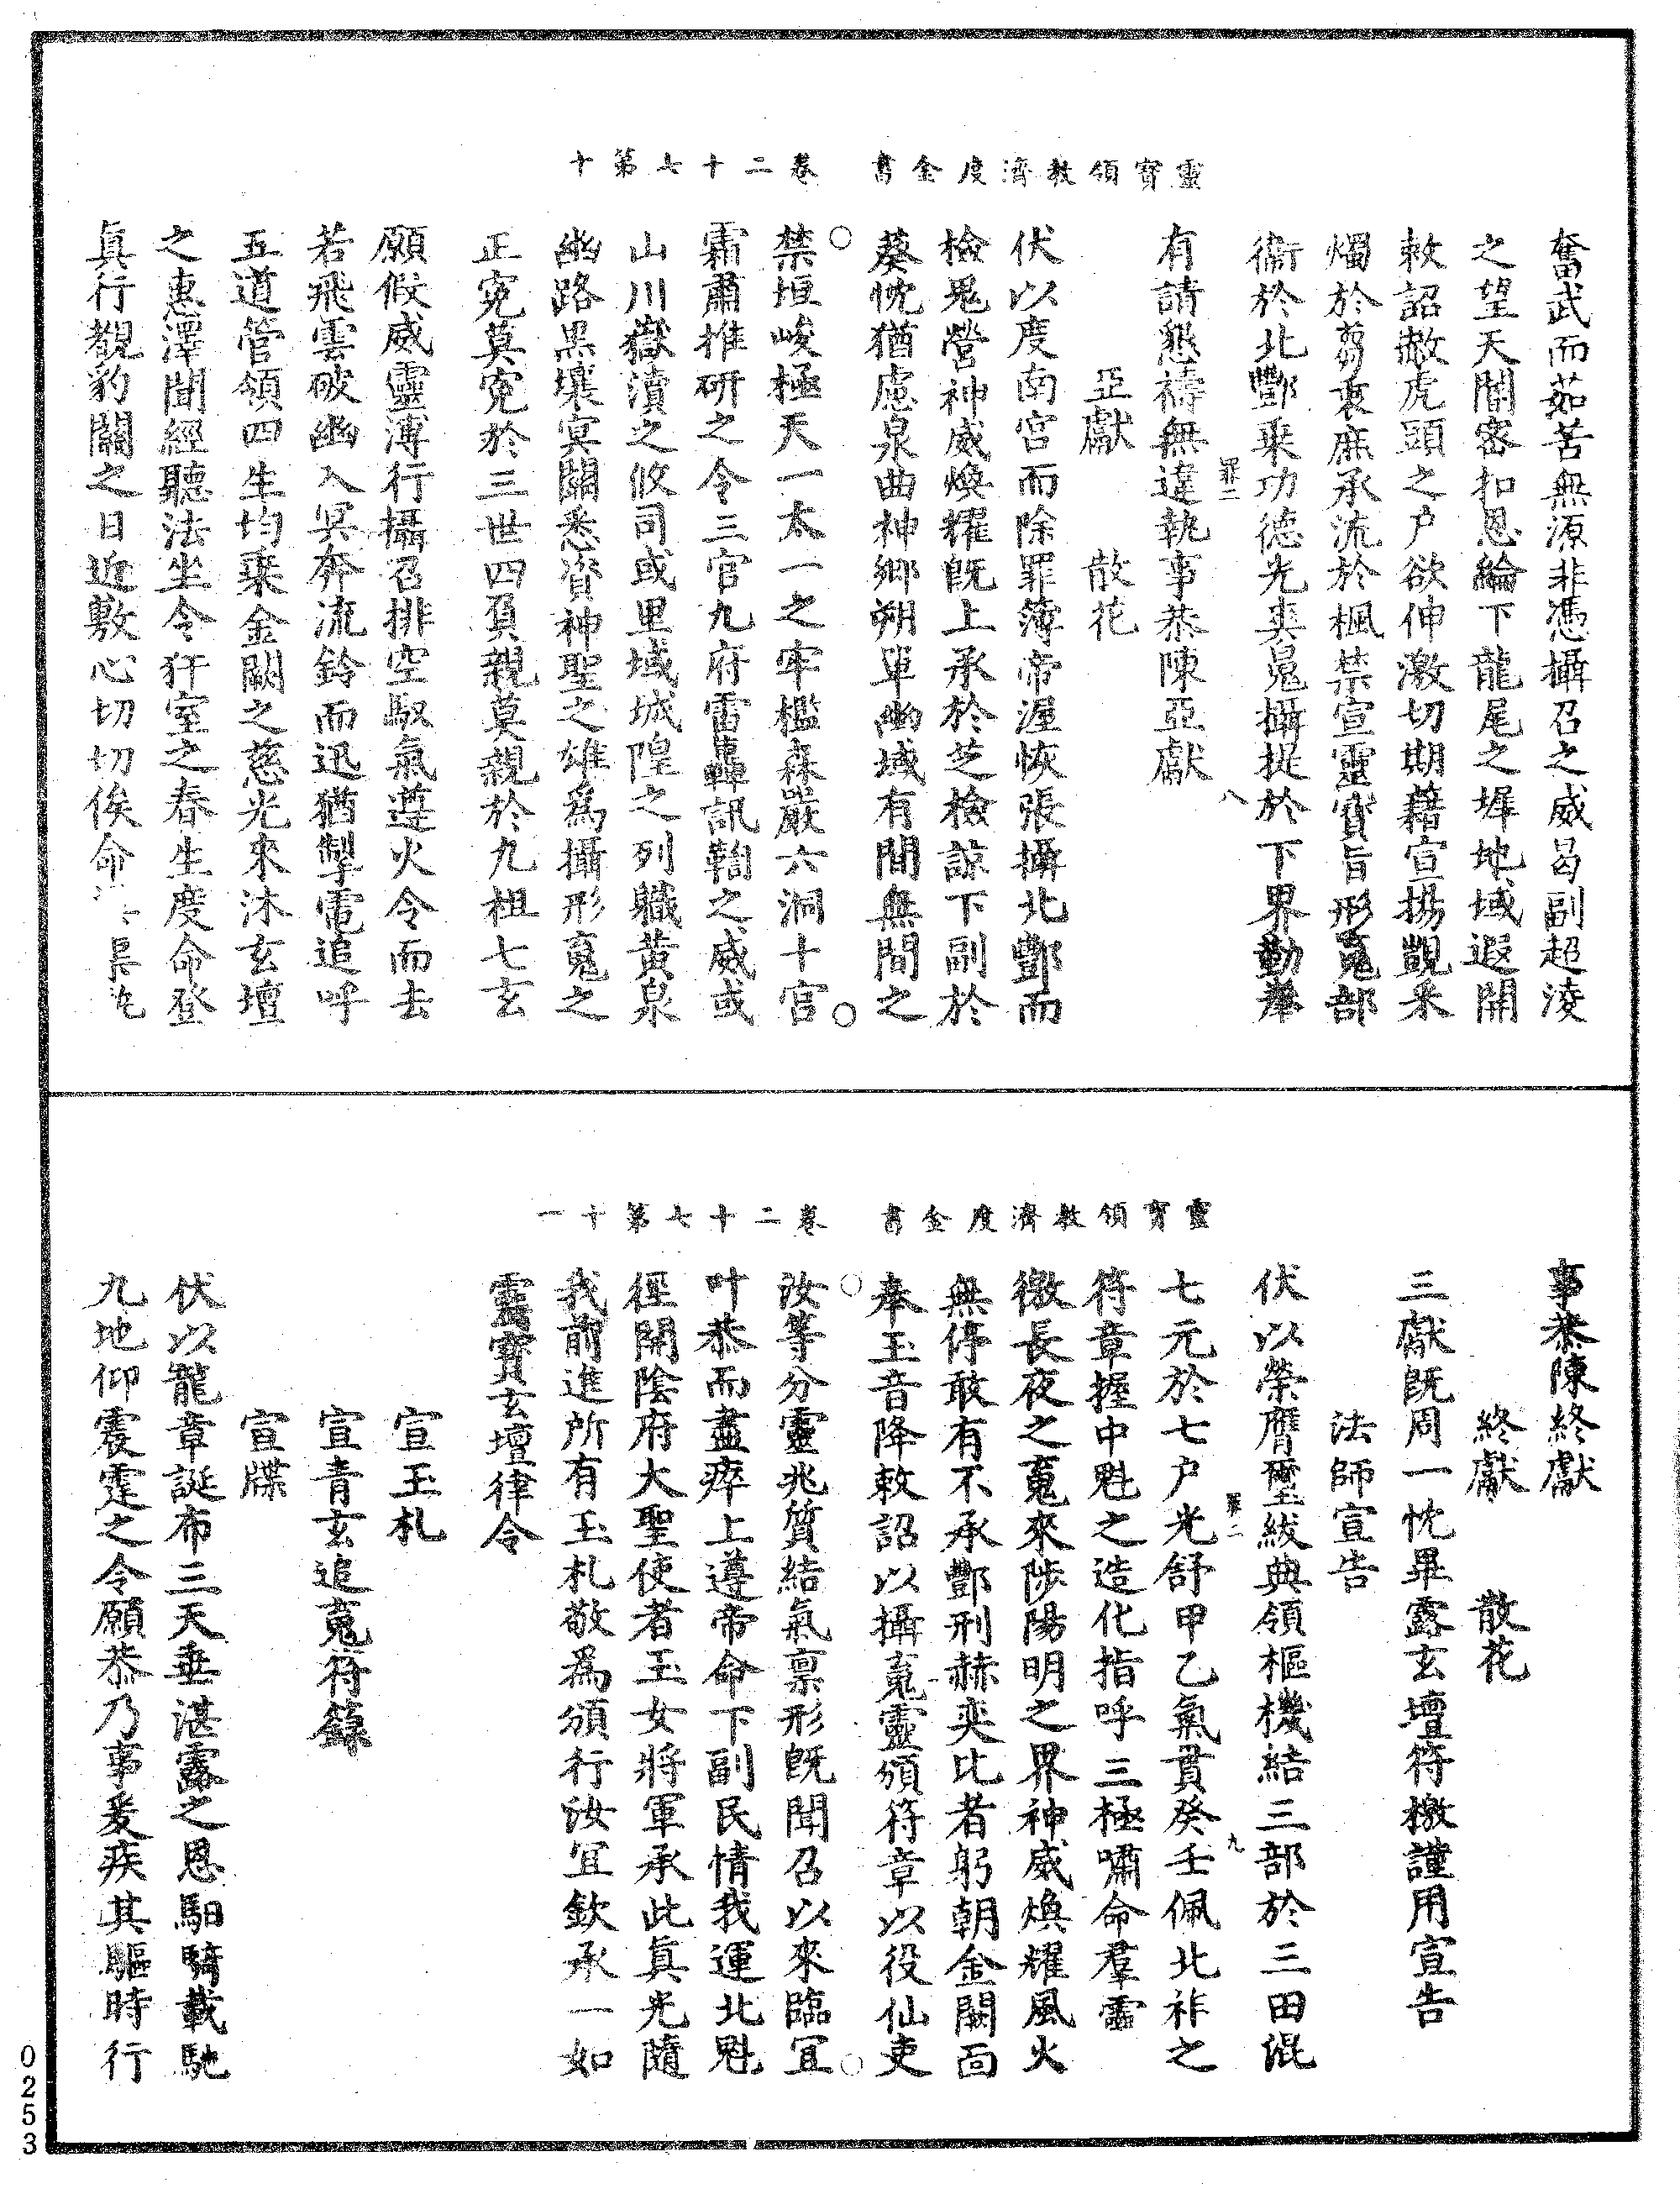 靈寶領教濟度金書　卷二十七第十
奮武而茹苦無源非憑攝召之威曷副超淩
之望天閽密扣恩綸下龍尾之墀地域遐開
敕詔敝虎頭之户欲伸激切期藉宣揚觀釆
燭於蒭裏庶承流於楓禁宣靈寶旨形䰟部
衞於北酆乗功德光夾䰟攝提於下界勤舉
有請懇禱無違執事恭陳亞獻
罪二　八
亞獻　散花
伏以度南宫而除罪簿帝渥恢張攝北酆而
檢䰟營神威煥耀旣上承於芝檢諒下副於
葵忱猶慮泉曲神鄉朔單幽域有間無間之
禁垣峻極天一太一之牢檻森嚴六洞十宫
霜肅推研之令三官九府雷轟訊鞫之威或
山川嶽瀆之攸司或里域城隍之列職黄泉
幽路黒壤㝠關悉資神聖之雄爲攝形䰟之
正寃莫寃於三世四負親莫親於九祖七玄
願假威靈溥行攝召排空馭氣遵火令而去
若飛雲破幽入冥奔流鈴而迅猶掣電追呼
五道管領四生均乗金闕之慈光來沐玄壇
之惠澤聞經聽法坐令犴室之春生度命登
眞行覩豹關之日近敷心切切俟命
靈寶領教濟度金書　卷二十七第十一
事恭陳終獻
終獻　散花
三獻旣周一忱畢露玄壇符檄謹用宣告
法師宣告
伏以榮膺璽紱典領樞機結三部於三田混
罪二　九
七元於七户光舒甲乙氣貫癸壬佩北祚之
符章握中魁之造化指呼三極嘯命羣靈
徼長夜之䰟來陟陽明之界神威煥耀風火
無停敢有不承酆刑赫奕比者躬朝金闕面
奉玉音降敕詔以攝䰟靈頒符章以役仙吏
汝等分靈兆質結氣禀形旣聞召以來臨宜
叶恭而盡瘁上遵帝命下副民情我運北魁
徑開陰府大聖使者玉女將軍承此眞光隨
我前進所有玉札敬爲頒行汝宜欽承一如
靈寶玄壇律令
宣玉札
宣青玄追䰟符籙
宣牒
伏以龍章誕布三天垂湛露之恩馹騎載馳
九地仰震霆之令願恭乃事爰疾其驅時行
0253